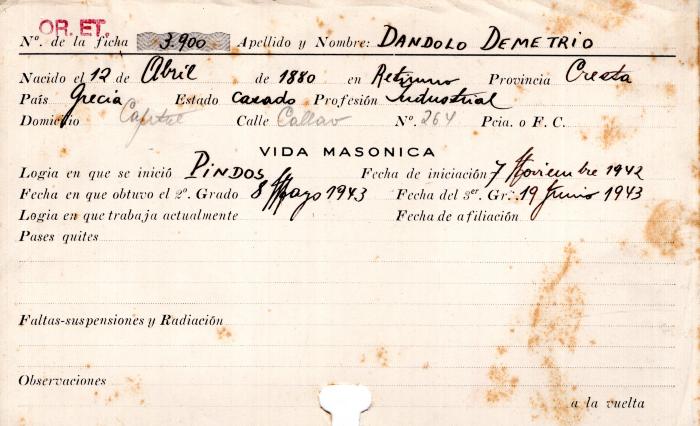 OR. ET.
Nº. de la ficha 3.900 Apellido y Nombre: DANDOLO DEMETRIO
Nacido el 12 de Abril de 1880 en Retimno Provincia Cresta
País Grecia Estado casado Profesión industrial
Domicilio Capital Calle Callao Nº. 264 Pcia. o F. C.
VIDA MASONICA
Logia en que se inició PINDOS Fecha de iniciación 7 Noviembre 1942
Fecha en que obtuvo el 2º. Grado 8 Mayo 1943 Fecha del 3er. Gr. 19 Junio 1943
Logia en que trabaja actualmente Fecha de afiliación
Pases quites
Faltas-suspensiones y Radiación
Observaciones
a la vuelta